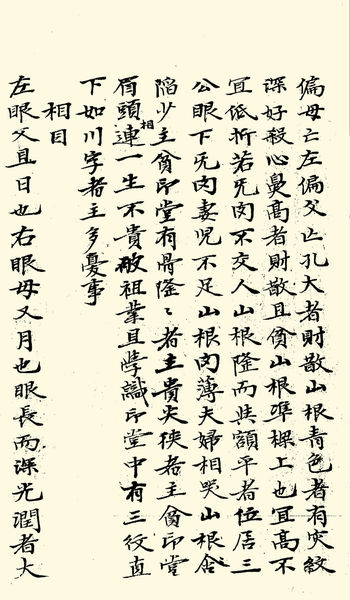 偏母亡左偏父亡孔大者財散山根青色者有灾紋
深好殺心鼻高者財散且貧山根準樑上也冝高不
冝低折若無肉不交人山根隆而與額平者位居三
公眼下無肉妻児不足山根肉薄夫婦相哭山根
陷少主貧印堂有骨隆〻者主貴尖狹者主貧印堂
眉頭相連一生不貴破祖業且學識印堂中有三紋直
下如川字者主多憂事
相目
左眼父且日也右眼母又月也眼長而深光潤者大